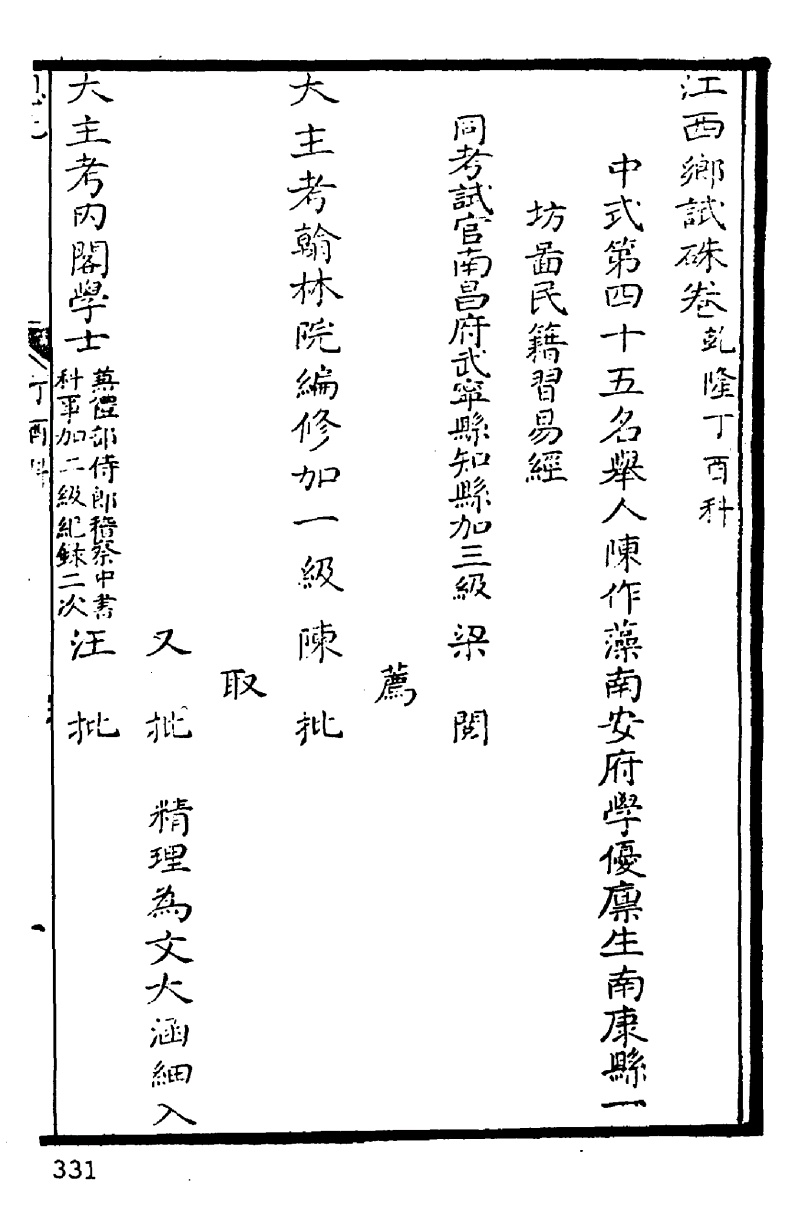 江西鄉試硃卷乾隆丁酉科
中式第四十五名舉人陳作藻南安府學優廩生南康縣一
坊啚民籍習易經
同考試官南昌府武寧縣知縣加三級梁 閱
薦
大主考翰林院編修加一級陳 批
取
又批 精理為文大涵細入
大主考內閣學士兼禮部侍郎稽察中書科事加二級紀錄二次汪 批
丁酉科
一
331